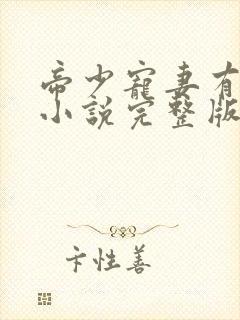 帝少寵妻有
小說完整版
卞性善